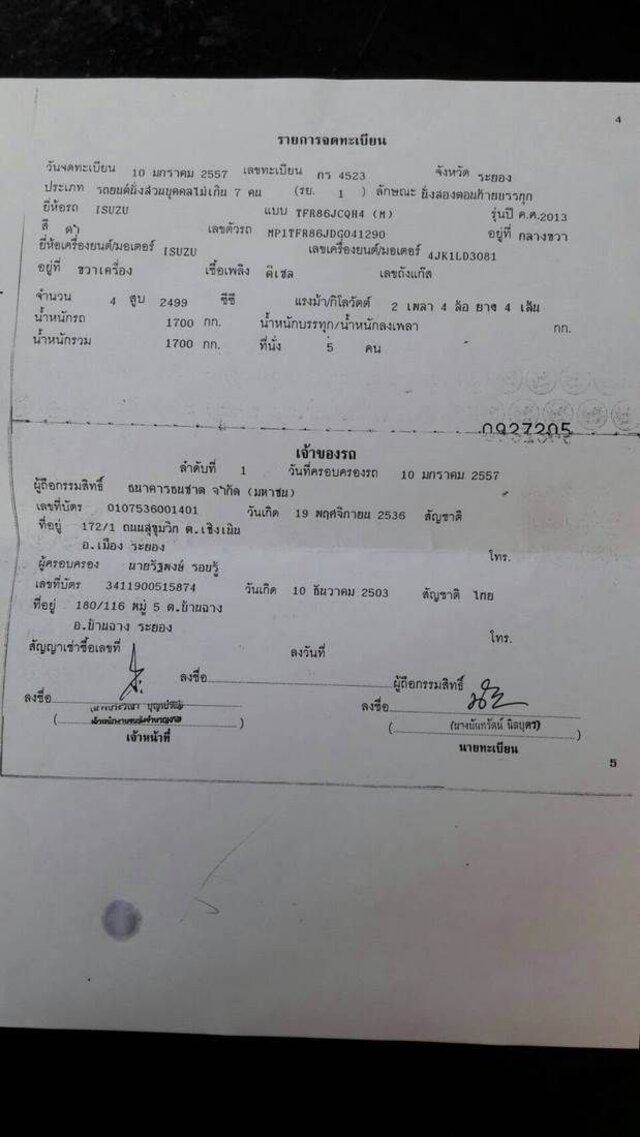 4
รายการจดทะเบียน
วันจดทะเบียน 10 มกราคม 2557 เลขทะเบียน กร 4523 จังหวัด ระยอง
ประเภท รถยนต์นั่งส่วนบุคคลไม่เกิน 7 คน (รย. 1 ) ลักษณะ นั่งสองตอนท้ายบรรทุก
ยี่ห้อรถ ISUZU แบบ TFR86JCQH4 (M) รุ่นปี ค.ศ.2013
สี ดำ เลขตัวรถ MP1TFR86JDG041290 อยู่ที่ กลางขวา
ยี่ห้อเครื่องยนต์/มอเตอร์ ISUZU เลขเครื่องยนต์/มอเตอร์ 4JK1LD3081
อยู่ที่ ขวาเครื่อง เชื้อเพลิง ดีเซล เลขถังแก๊ส
จำนวน 4 สูบ 2499 ซีซี แรงม้า/กิโลวัตต์ 2 เพลา 4 ล้อ ยาง 4 เส้น
น้ำหนักรถ 1700 กก. น้ำหนักบรรทุก/น้ำหนักลงเพลา กก.
น้ำหนักรวม 1700 กก. ที่นั่ง 5 คน
0927205
เจ้าของรถ
ลำดับที่ 1 วันที่ครอบครองรถ 10 มกราคม 2557
ผู้ถือกรรมสิทธิ์ ธนาคารธนชาต จำกัด (มหาชน)
เลขที่บัตร 0107536001401 วันเกิด 19 พฤศจิกายน 2536 สัญชาติ
ที่อยู่ 172/1 ถนนสุขุมวิท ต.เชิงเนิน
อ.เมือง ระยอง
โทร.
ผู้ครอบครอง นายรัฐพงษ์ รอบรู้
เลขที่บัตร 3411900515874 วันเกิด 10 ธันวาคม 2503 สัญชาติ ไทย
ที่อยู่ 180/116 หมู่ 5 ต.บ้านฉาง
อ.บ้านฉาง ระยอง
โทร.
สัญญาเช่าซื้อเลขที่ ลงวันที่
ลงชื่อ ผู้ถือกรรมสิทธิ์
ลงชื่อ ลงชื่อ
(นางนันทรัตน์ นิลบุตร)
เจ้าหน้าที่ นายทะเบียน
5